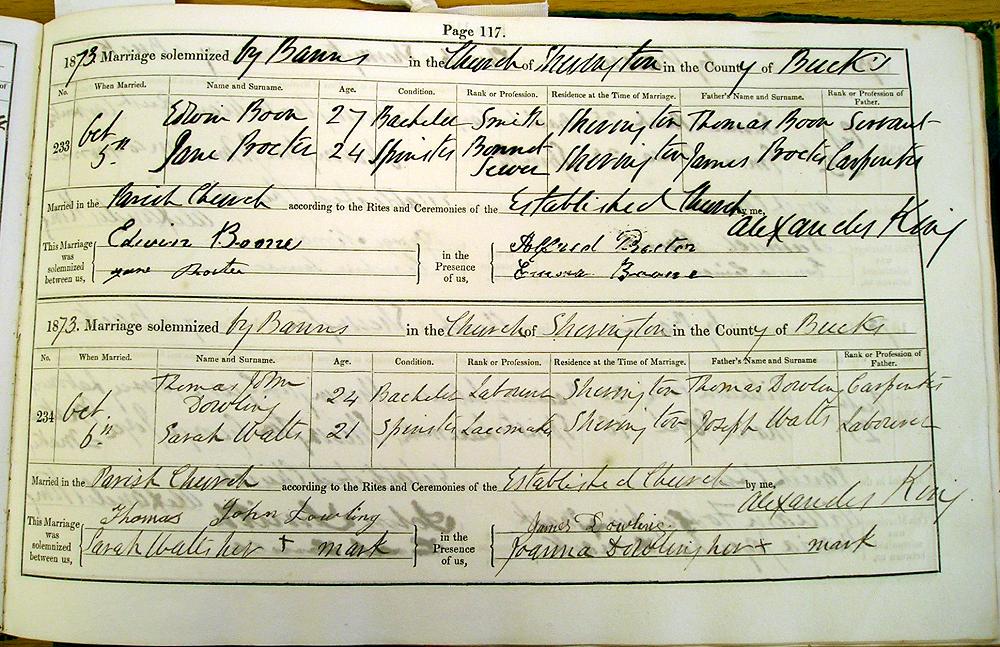 Page 117.
1873. Marriage solemnized by Banns in the Church of Sherington in the County of Bucks
No. When Married. Name and Surname. Age. Condition. Rank or Profession. Residence at the Time of Marriage. Father's Name and Surname. Rank or Profession of Father.
233 Oct 5th Edwin Boon 27 Bachelor Smith Sherington Thomas Boon Servant
Jane Procter 24 Spinster Bonnet Sewer Sherington James Procter Carpenter
Married in the Parish Church according to the Rites and Ceremonies of the Established Church by me,
Alexander King
This Marriage was solemnized between us, Edwin Boone in the Presence of us, Alfred Procter
Jane Procter Emma Boone
1873. Marriage solemnized by Banns in the Church of Sherington in the County of Bucks
No. When Married. Name and Surname. Age. Condition. Rank or Profession. Residence at the Time of Marriage. Father's Name and Surname Rank or Profession of Father.
234 Oct. 6th Thomas John Dowling 24 Bachelor Labourer Sherington Thomas Dowling Carpenter
Sarah Watts 21 Spinster Lacemaker Sherington Joseph Watts Labourer
Married in the Parish Church according to the Rites and Ceremonies of the Established Church by me,
Alexander King
This Marriage was solemnized between us, Thomas John Dowling in the Presence of us, James Dowling
Sarah Watts her + mark Joanna Dowling her + mark